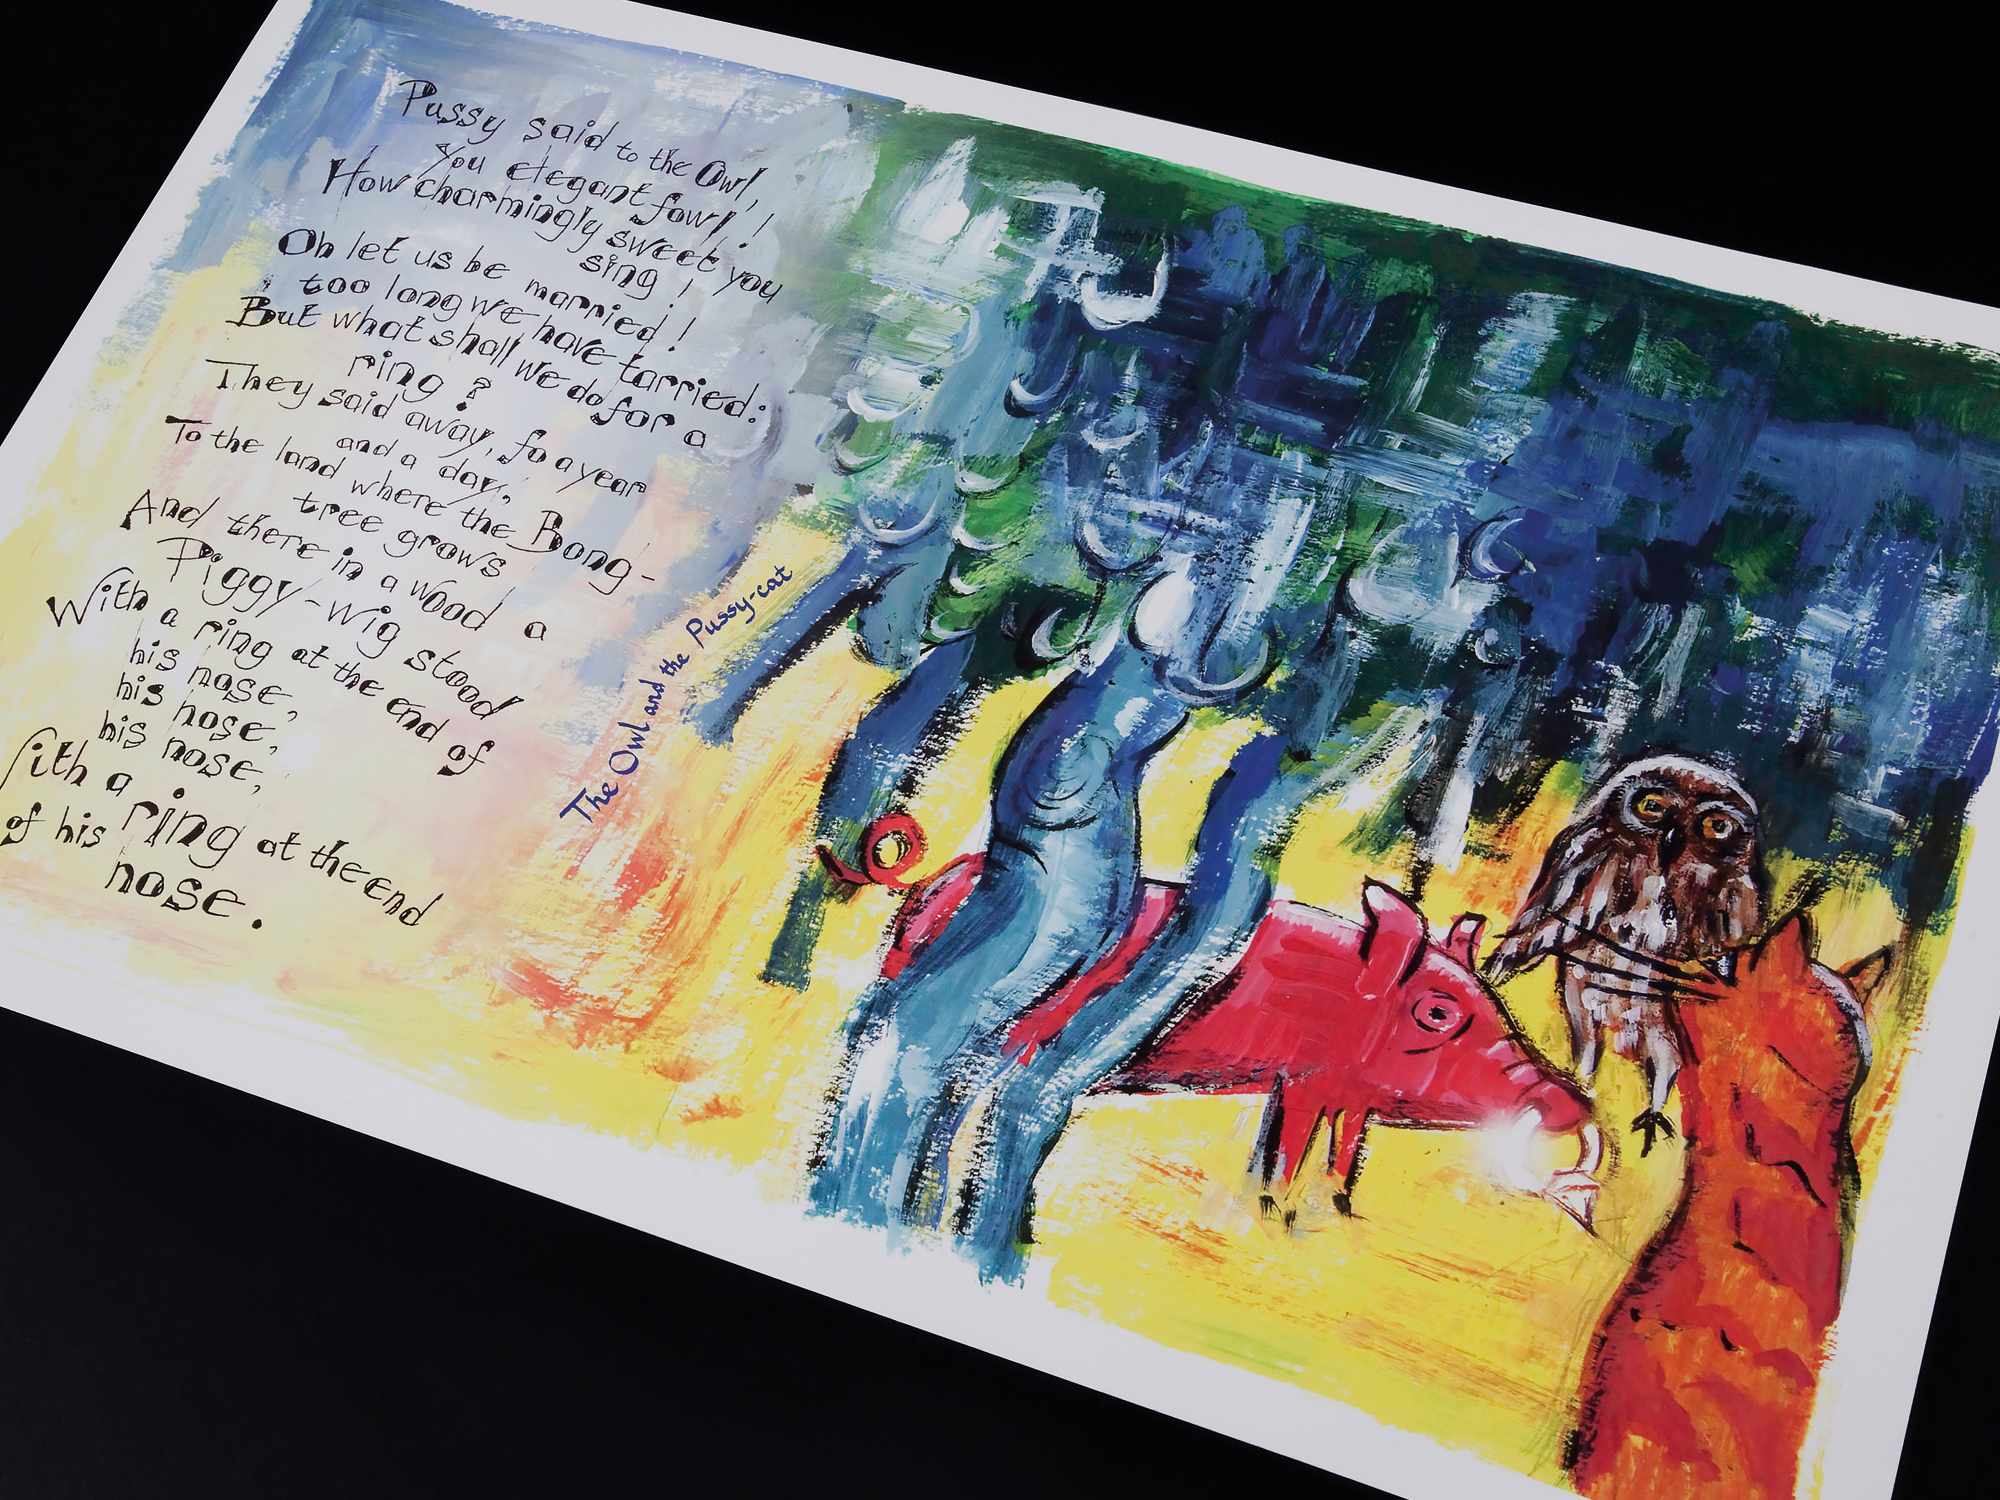 Pussy said to the Owl,
You elegant fowl,!
How charmingly sweet you
sing!
Oh let us be married!
too long we have tarried:
But what shall we do for a
ring?
They said away, fo a year
and a day,
To the land where the Bong-
tree grows
And there in a wood a
Piggy-wig stood
With a ring at the end of
his nose,
his nose,
his nose,
With a ring at the end
of his nose.
The Owl and the Pussy-cat